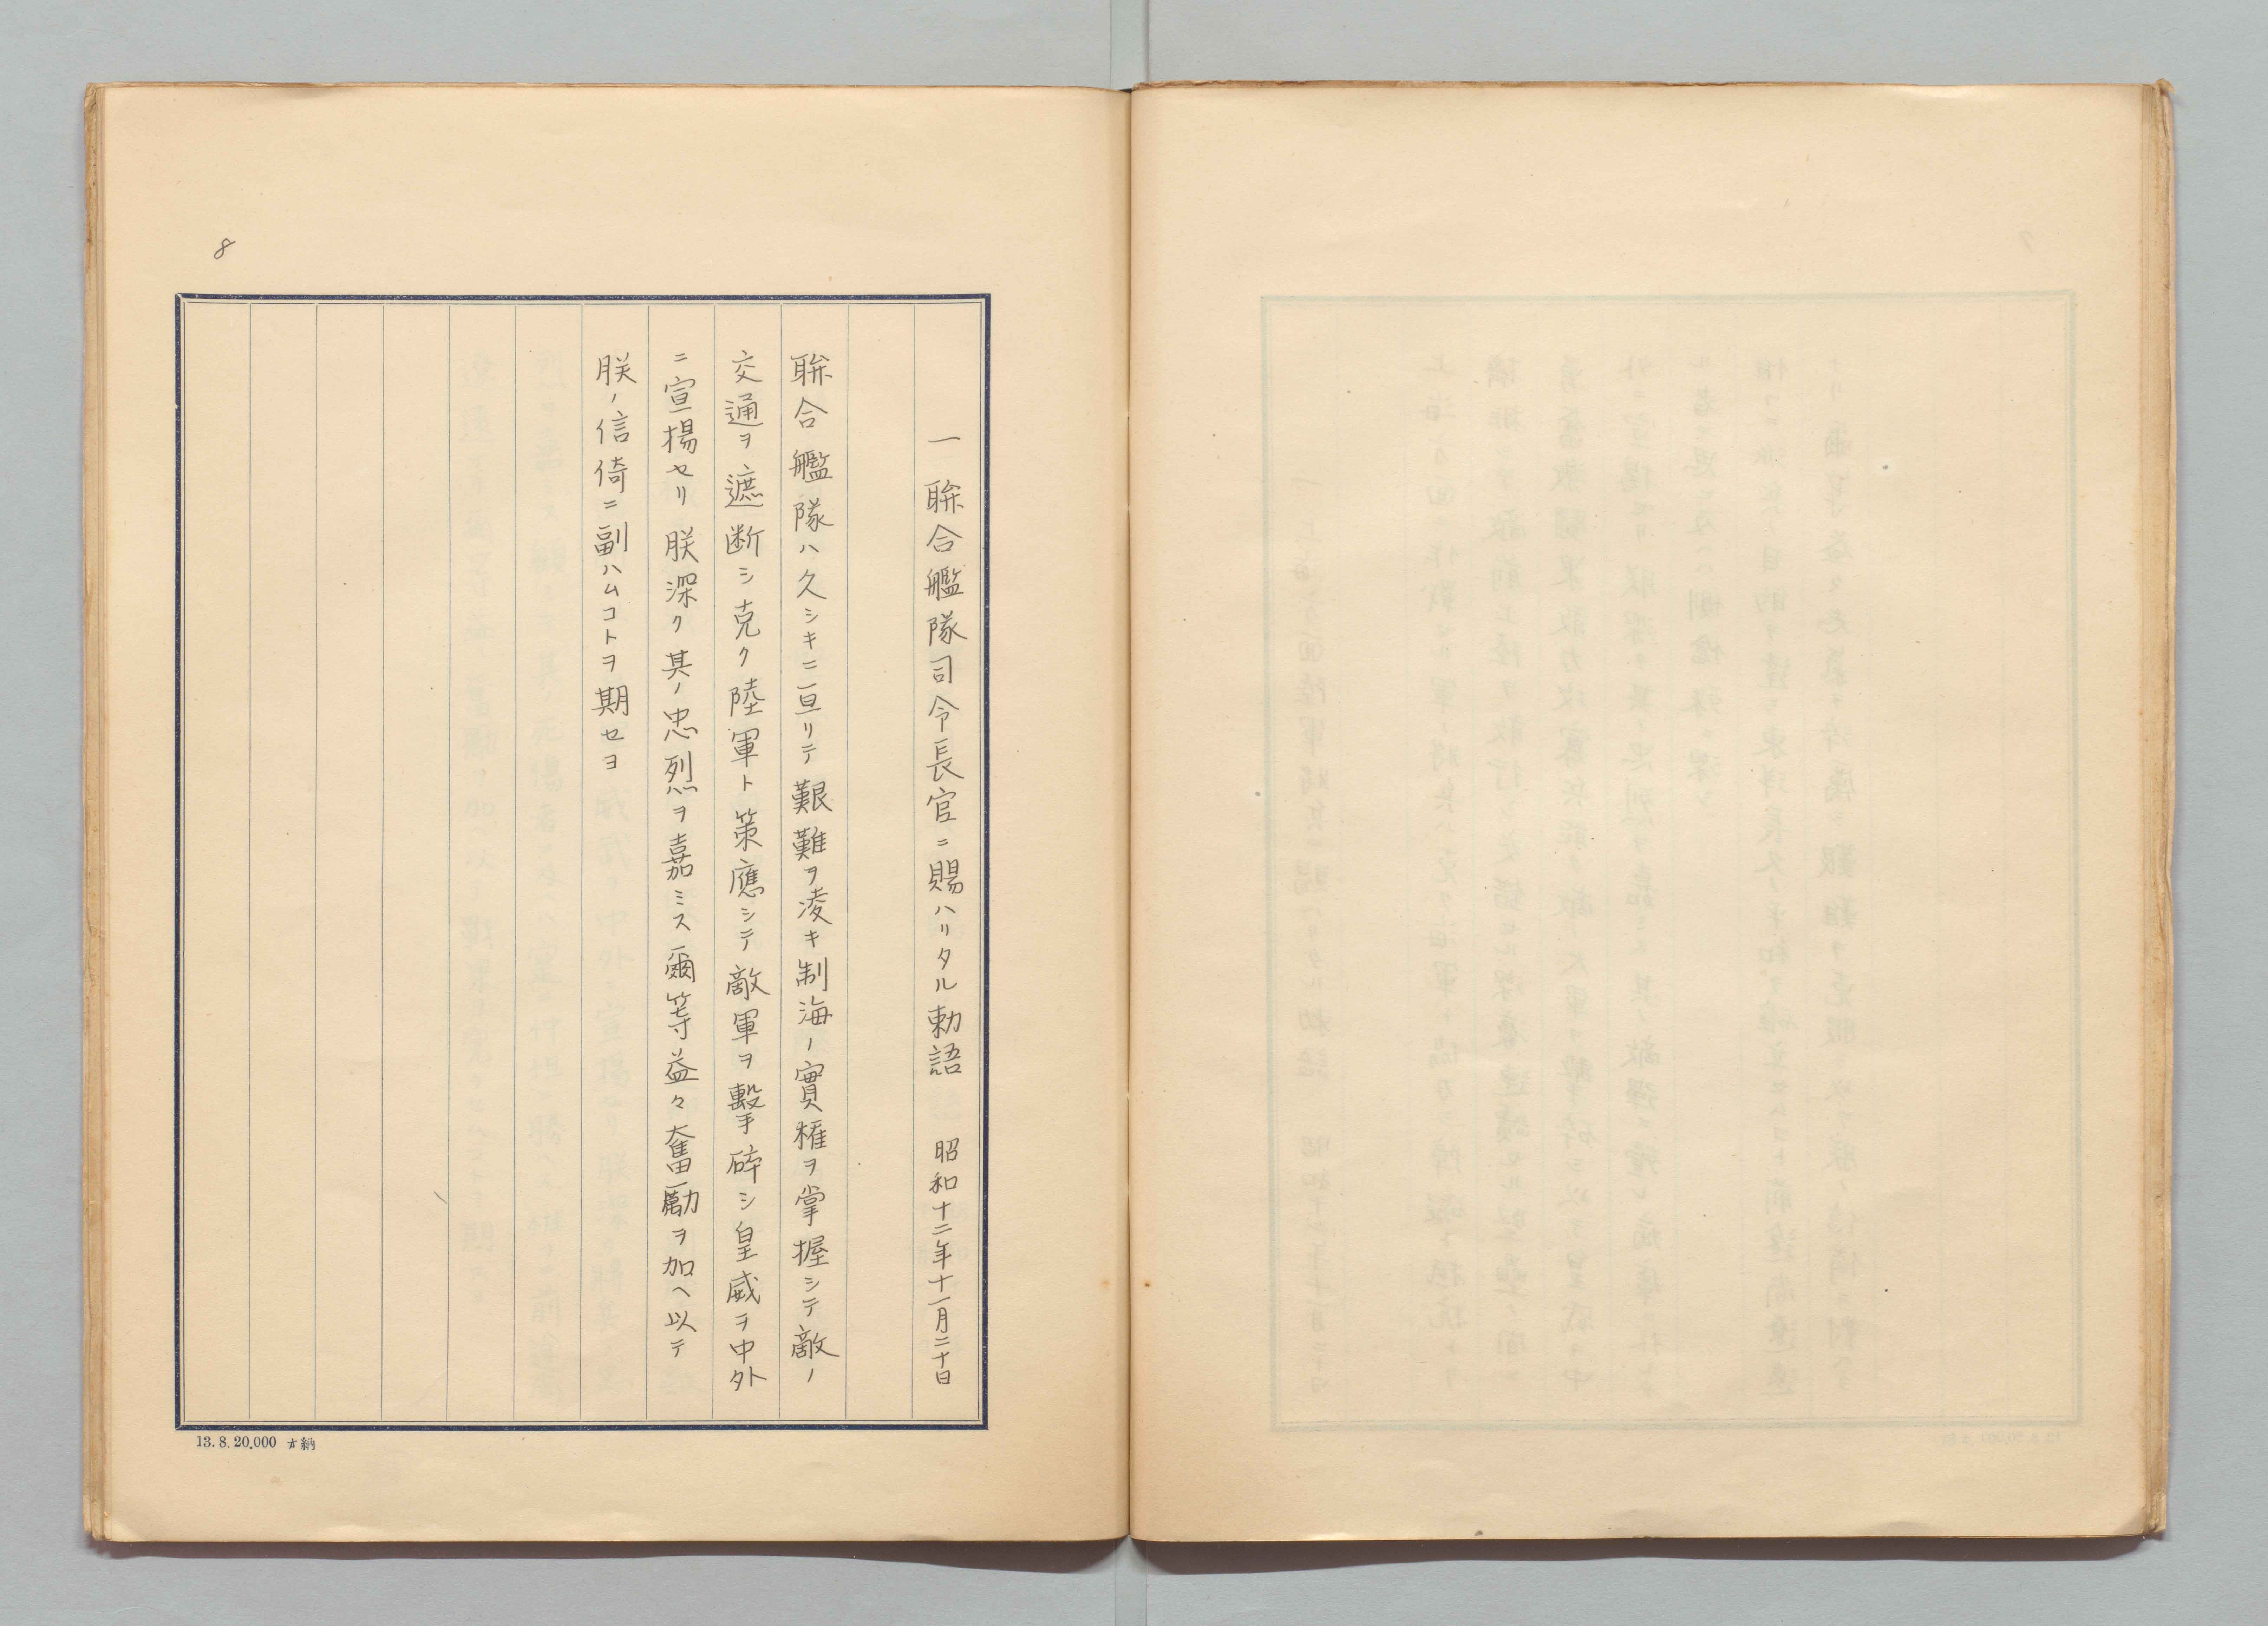 8
一 聨合艦隊司令長官ニ賜ハリタル勅語 昭和十二年十一月二十日
聨合艦隊ハ久シキニ亘リテ艱難ヲ凌キ制海ノ實権ヲ掌握シテ敵ノ
交通ヲ遮断シ克ク陸軍ト策應シテ敵軍ヲ擊碎シ皇威ヲ中外
ニ宣揚セリ朕深ク其ノ忠烈ヲ嘉ミス爾等益々奮勵ヲ加ヘ以テ
朕ノ信倚ニ副ハムコトヲ期セヨ
13.8.20,000 才納